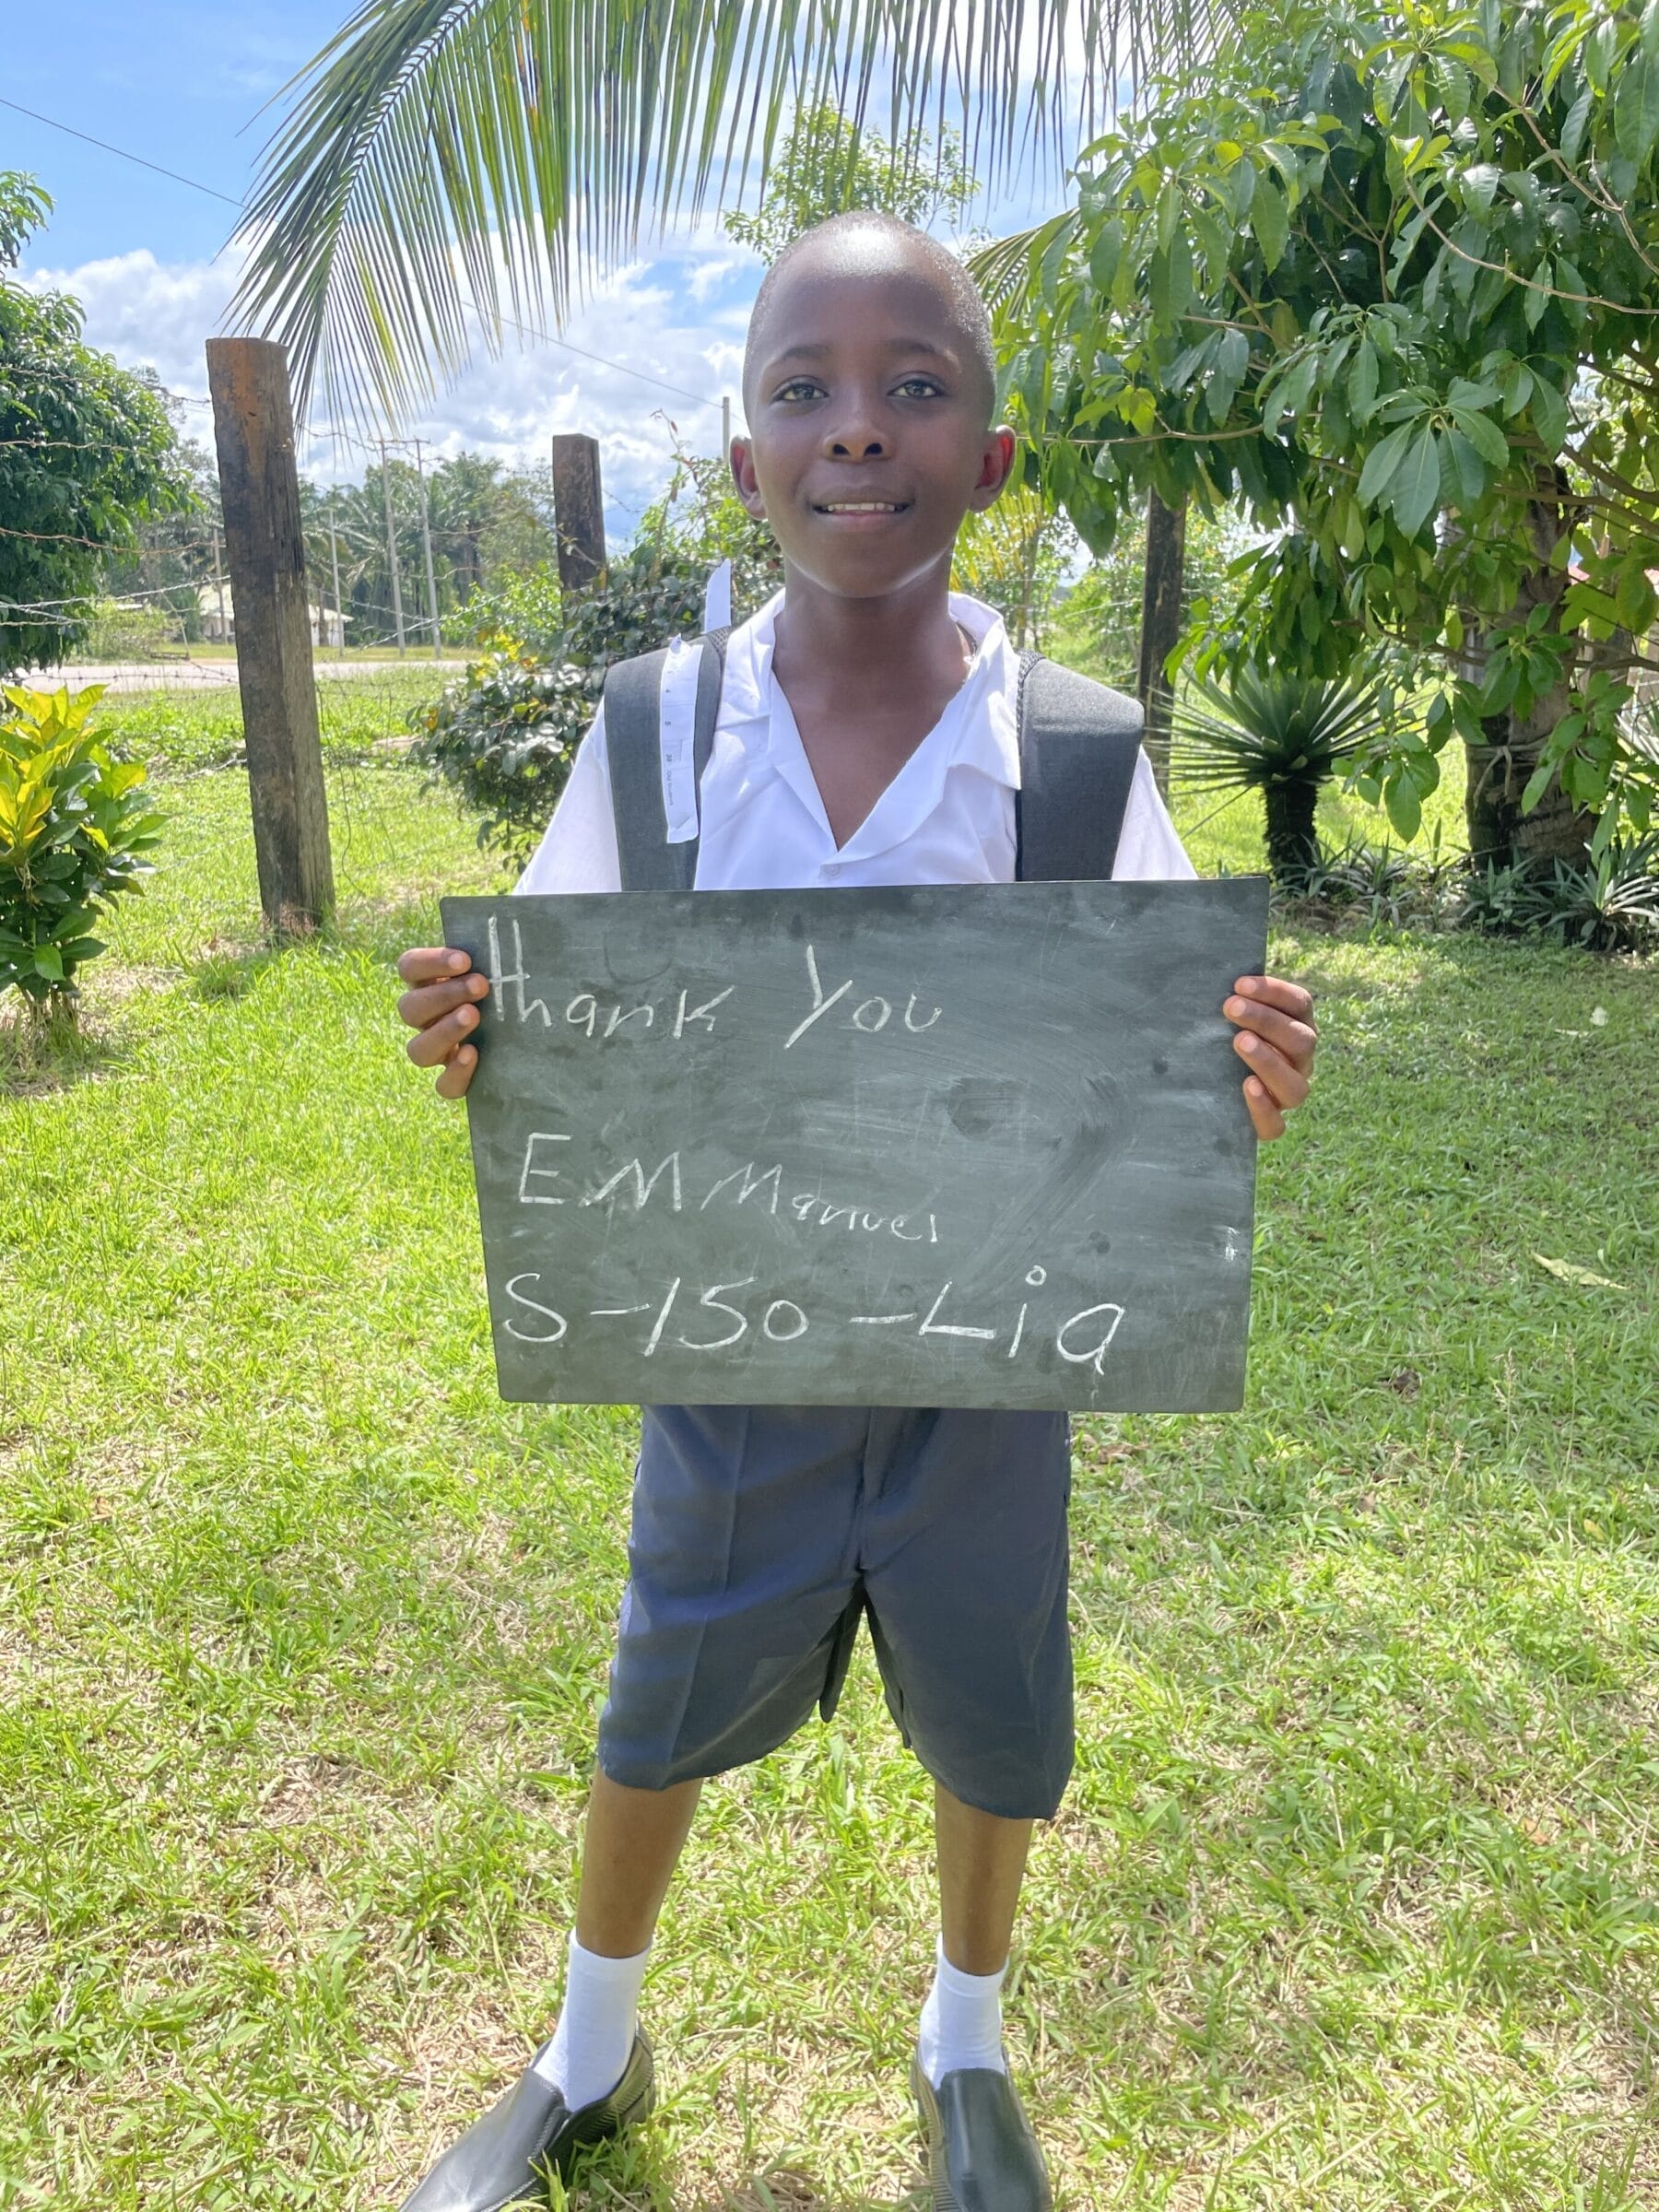 Thank You
EMManuel
S-150-Lia